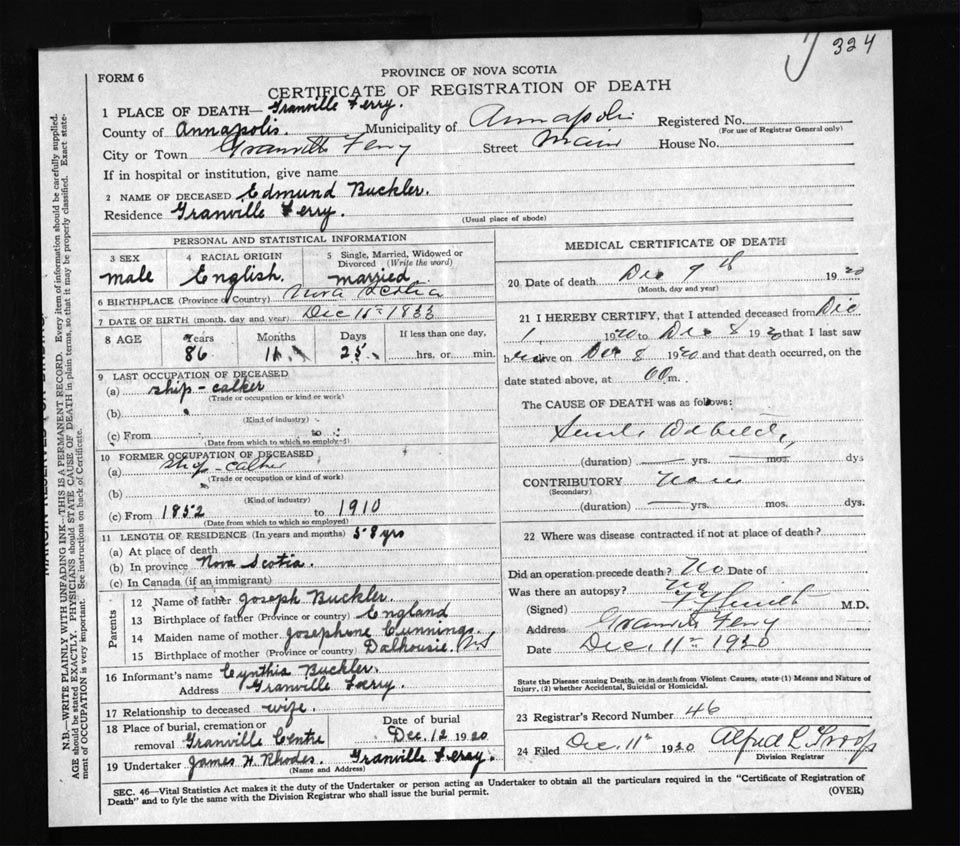 324
FORM 6
PROVINCE OF NOVA SCOTIA
CERTIFICATE OF REGISTRATION OF DEATH
1 PLACE OF DEATH— Granville Ferry.
County of Annapolis. Municipality of Annapolis Registered No.
(For use of Registrar General only)
City or Town Granville Ferry Street Main House No.
If in hospital or institution, give name
2 NAME OF DECEASED Edmund Buckler.
Residence Granville Ferry.
(Usual place of abode)
PERSONAL AND STATISTICAL INFORMATION
3 SEX 4 RACIAL ORIGIN 5 Single, Married, Widowed or Divorced (Write the word)
male English. married
6 BIRTHPLACE (Province or Country) Nova Scotia
7 DATE OF BIRTH (month, day and year) Dec 11th 1833
8 AGE Years Months Days If less than one day,
86 11 25 hrs. or min.
9 LAST OCCUPATION OF DECEASED
(a) ship-calker
(Trade or occupation or kind or work)
(b)
(Kind of industry)
(c) From to
(Date from which to which so employed)
10 FORMER OCCUPATION OF DECEASED
(a) ship-calker
(Trade or occupation or kind of work)
(b)
(Kind of industry)
(c) From 1852 to 1910
(Date from which to which so employed)
11 LENGTH OF RESIDENCE (In years and months) 58 yrs
(a) At place of death
(b) In province Nova Scotia.
(c) In Canada (if an immigrant)
Parents
12 Name of father Joseph Buckler.
13 Birthplace of father (Province or country) England
14 Maiden name of mother Josephene Cunnings
15 Birthplace of mother (Province or country) Dalhousie. N.S
16 Informant's name Cynthia Buckler.
Address Granville Ferry.
17 Relationship to deceased wife.
18 Place of burial, cremation or removal Granville Centre
Date of burial
Dec. 12 1920
19 Undertaker James H. Rhodes. Granville Ferry.
(Name and Address)
MEDICAL CERTIFICATE OF DEATH
20 Date of death Dec 9th 1920
(Month, day and year)
21 I HEREBY CERTIFY, that I attended deceased from Dec
1 1920 to Dec 8 1920 that I last saw
h alive on Dec 8 1920 and that death occurred, on the
date stated above, at m.
The CAUSE OF DEATH was as follows:
Senile Debility
(duration) yrs. mos. dys
CONTRIBUTORY None
(Secondary)
(duration) yrs. mos. dys.
22 Where was disease contracted if not at place of death?
Did an operation precede death? No Date of
Was there an autopsy? No
(Signed) M.D.
Address Granville Ferry
Date Dec. 11th 1920
State the Disease causing Death, or in death from Violent Causes, state (1) Means and Nature of
Injury, (2) whether Accidental, Suicidal or Homicidal.
23 Registrar's Record Number 46
24 Filed Dec. 11th 1920 Alfred L Troop
Division Registrar
SEC. 46—Vital Statistics Act makes it the duty of the Undertaker or person acting as Undertaker to obtain all the particulars required in the "Certificate of Registration of
Death" and to fyle the same with the Division Registrar who shall issue the burial permit.
(OVER)
N.B.—WRITE PLAINLY WITH UNFADING INK—THIS IS A PERMANENT RECORD. Every item of information should be carefully supplied.
AGE should be stated EXACTLY. PHYSICIANS should STATE CAUSE OF DEATH in plain terms, so that it may be properly classified. Exact state-
ment of OCCUPATION is very important. See instructions on back of Certificate.